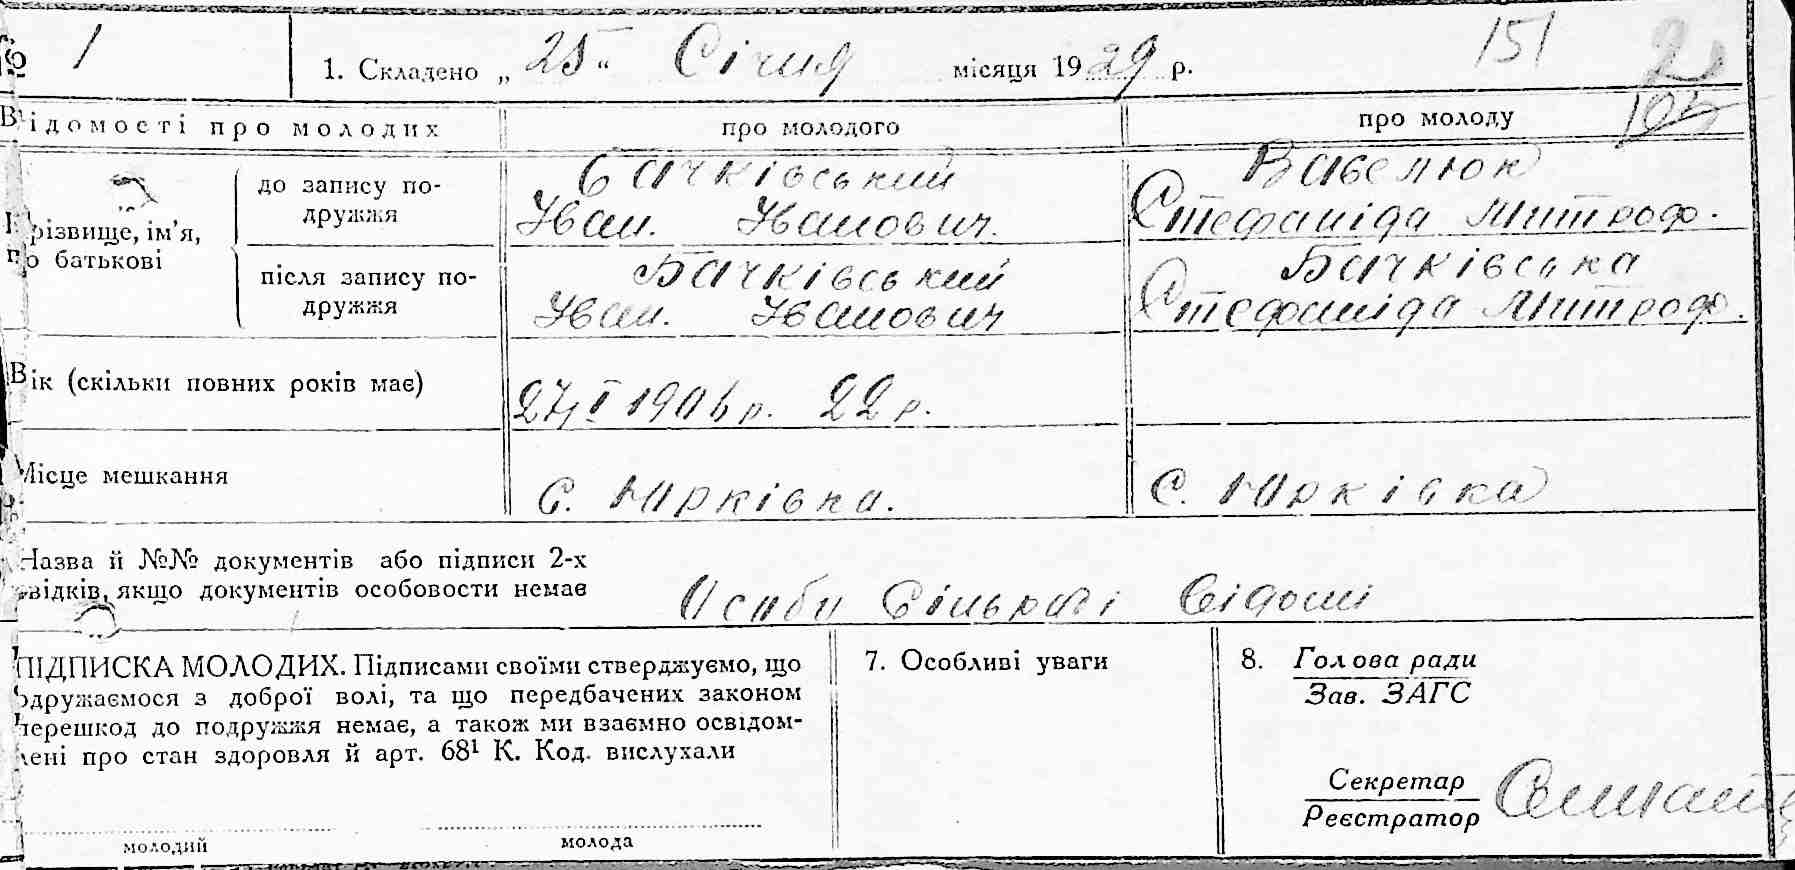 № 1
1. Складено „ 25 “ Січня місяця 1929 р.
151
2
103
Відомості про молодих
про молодого
про молоду
Прізвище, ім’я,
по батькові
до запису по-
дружжя
Бачківський
Іван. Іванович.
Вавелюк
Стефаніда Митроф.
після запису по-
дружжя
Бачківський
Іван. Іванович
Бачківська
Стефаніда Митроф.
Вік (скільки повних років має)
27/I 1906 р. 22 р.
Місце мешкання
С. Юрківка.
С. Юрківка
Назва й №№ документів або підписи 2-х
свідків, якщо документів особовости немає
Особи Сільраді Відомі
ПІДПИСКА МОЛОДИХ. Підписами своїми стверджуємо, що
одружаємося з доброї волі, та що передбачених законом
перешкод до подружжя немає, а також ми взаємно освідом-
лені про стан здоровля й арт. 68¹ К. Код. вислухали
молодий
молода
7. Особливі уваги
8. Голова ради
Зав. ЗАГС
Секретар
Реєстратор